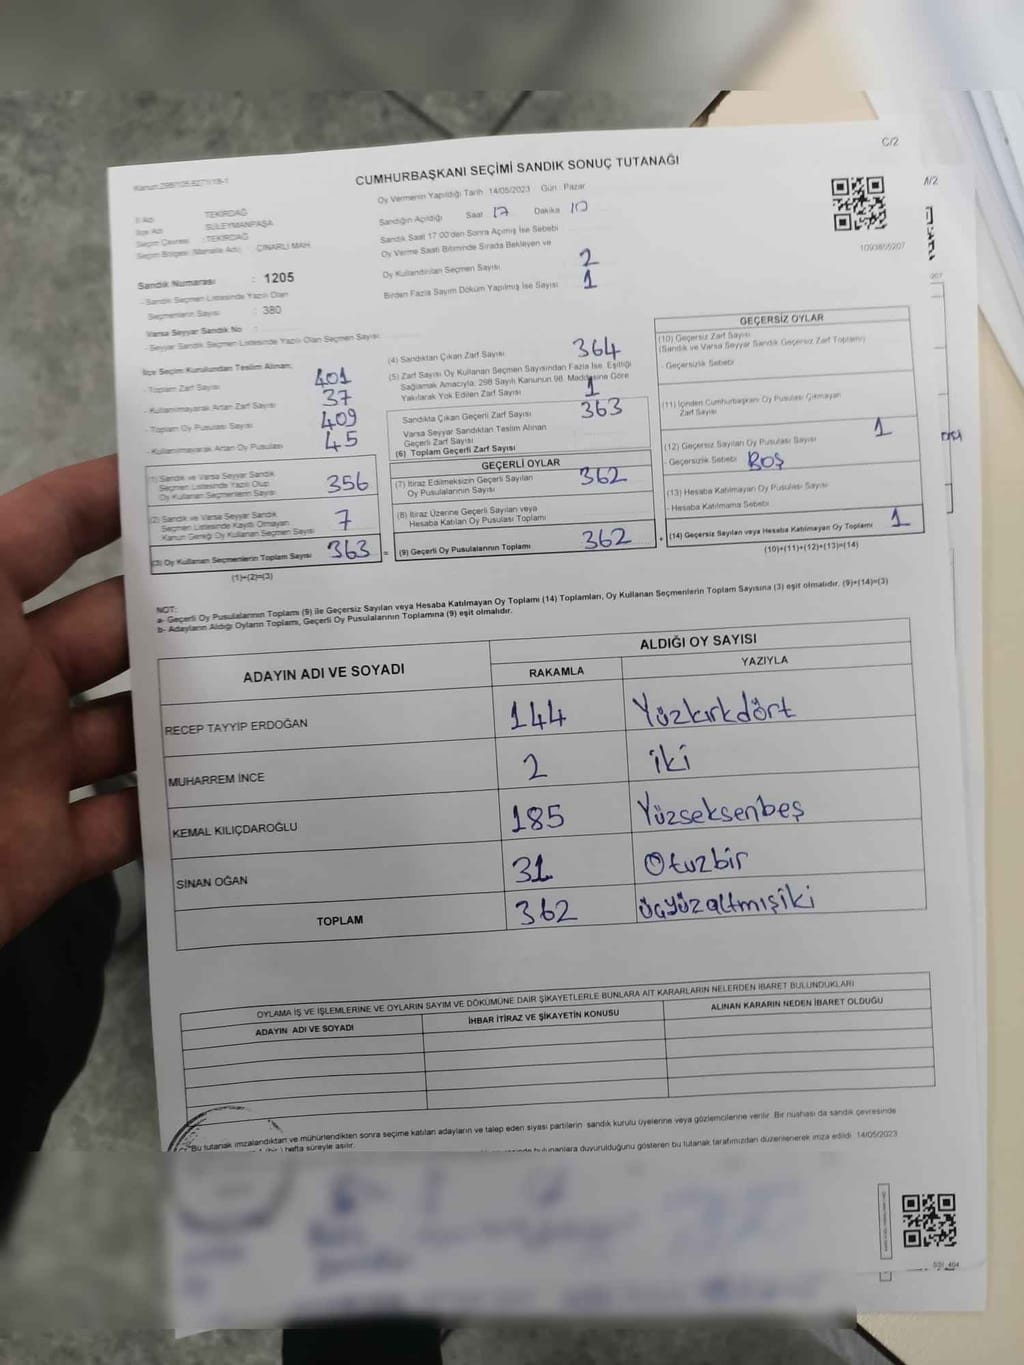 C/2
Kanun:298/105-6271/18-1
CUMHURBAŞKANI SEÇİMİ SANDIK SONUÇ TUTANAĞI
Oy Vermenin Yapıldığı Tarih 14/05/2023 Gün Pazar
İl Adı : TEKİRDAĞ
İlçe Adı : SÜLEYMANPAŞA
Seçim Çevresi : TEKİRDAĞ
Seçim Bölgesi (Mahalle Adı) : ÇINARLI MAH
Sandığın Açıldığı Saat 17 Dakika 10
Sandık Saat 17:00'den Sonra Açılmış İse Sebebi
Oy Verme Saati Bitiminde Sırada Bekleyen ve
Oy Kullandırılan Seçmen Sayısı 2
Birden Fazla Sayım Döküm Yapılmış İse Sayısı 1
A/2
1093855207
Sandık Numarası : 1205
- Sandık Seçmen Listesinde Yazılı Olan
Seçmenlerin Sayısı : 380
Varsa Seyyar Sandık No :
- Seyyar Sandık Seçmen Listesinde Yazılı Olan Seçmen Sayısı:
İlçe Seçim Kurulundan Teslim Alınan:
- Toplam Zarf Sayısı 401
- Kullanılmayarak Artan Zarf Sayısı 37
- Toplam Oy Pusulası 409
- Kullanılmayarak Artan Oy Pusulası 45
(1) Sandık ve Varsa Seyyar Sandık
Seçmen Listesinde Yazılı Olup
Oy Kullanan Seçmenlerin Sayısı 356
(2) Sandık ve Varsa Seyyar Sandık
Seçmen Listesinde Kayıtlı Olmayan
Kanun Gereği Oy Kullanan Seçmen Sayısı 7
(3) Oy Kullanan Seçmenlerin Toplam Sayısı 363 =
(1)+(2)=(3)
(4) Sandıktan Çıkan Zarf Sayısı 364
(5) Zarf Sayısı Oy Kullanan Seçmen Sayısından Fazla İse, Eşitliği
Sağlamak Amacıyla, 298 Sayılı Kanunun 98. Maddesine Göre
Yakılarak Yok Edilen Zarf Sayısı 1
Sandıkta Çıkan Geçerli Zarf Sayısı 363
Varsa Seyyar Sandıktan Teslim Alınan
Geçerli Zarf Sayısı
(6) Toplam Geçerli Zarf Sayısı
GEÇERLİ OYLAR
(7) İtiraz Edilmeksizin Geçerli Sayılan
Oy Pusulalarının Sayısı 362
(8) İtiraz Üzerine Geçerli Sayılan veya
Hesaba Katılan Oy Pusulası Toplamı
(9) Geçerli Oy Pusulalarının Toplamı 362 +
GEÇERSİZ OYLAR
(10) Geçersiz Zarf Sayısı
(Sandık ve Varsa Seyyar Sandık Geçersiz Zarf Toplamı)
- Geçersizlik Sebebi
(11) İçinden Cumhurbaşkanı Oy Pusulası Çıkmayan
Zarf Sayısı
(12) Geçersiz Sayılan Oy Pusulası Sayısı 1
- Geçersizlik Sebebi BOŞ
(13) Hesaba Katılmayan Oy Pusulası Sayısı
- Hesaba Katılmama Sebebi
(14) Geçersiz Sayılan veya Hesaba Katılmayan Oy Toplamı 1
(10)+(11)+(12)+(13)=(14)
NOT:
a- Geçerli Oy Pusulalarının Toplamı (9) ile Geçersiz Sayılan veya Hesaba Katılmayan Oy Toplamı (14) Toplamları, Oy Kullanan Seçmenlerin Toplam Sayısına (3) eşit olmalıdır. (9)+(14)=(3)
b- Adayların Aldığı Oyların Toplamı, Geçerli Oy Pusulalarının Toplamına (9) eşit olmalıdır.
ADAYIN ADI VE SOYADI ALDIĞI OY SAYISI
RAKAMLA YAZIYLA
RECEP TAYYİP ERDOĞAN 144 Yüzkırkdört
MUHARREM İNCE 2 iki
KEMAL KILIÇDAROĞLU 185 Yüzseksenbeş
SİNAN OĞAN 31 Otuzbir
TOPLAM 362 üçyüzaltmışiki
OYLAMA İŞ VE İŞLEMLERİNE VE OYLARIN SAYIM VE DÖKÜMÜNE DAİR ŞİKAYETLERLE BUNLARA AİT KARARLARIN NELERDEN İBARET BULUNDUKLARI
ADAYIN ADI VE SOYADI İHBAR İTİRAZ VE ŞİKAYETİN KONUSU ALINAN KARARIN NEDEN İBARET OLDUĞU
Bu tutanak imzalandıktan ve mühürlendikten sonra seçime katılan adayların ve talep eden siyasi partilerin sandık kurulu üyelerine veya gözlemcilerine verilir. Bir nüshası da sandık çevresinde
1 (bir) hafta süreyle asılır. bulunanlara duyurulduğunu gösteren bu tutanak tarafımızdan düzenlenerek imza edildi. 14/05/2023